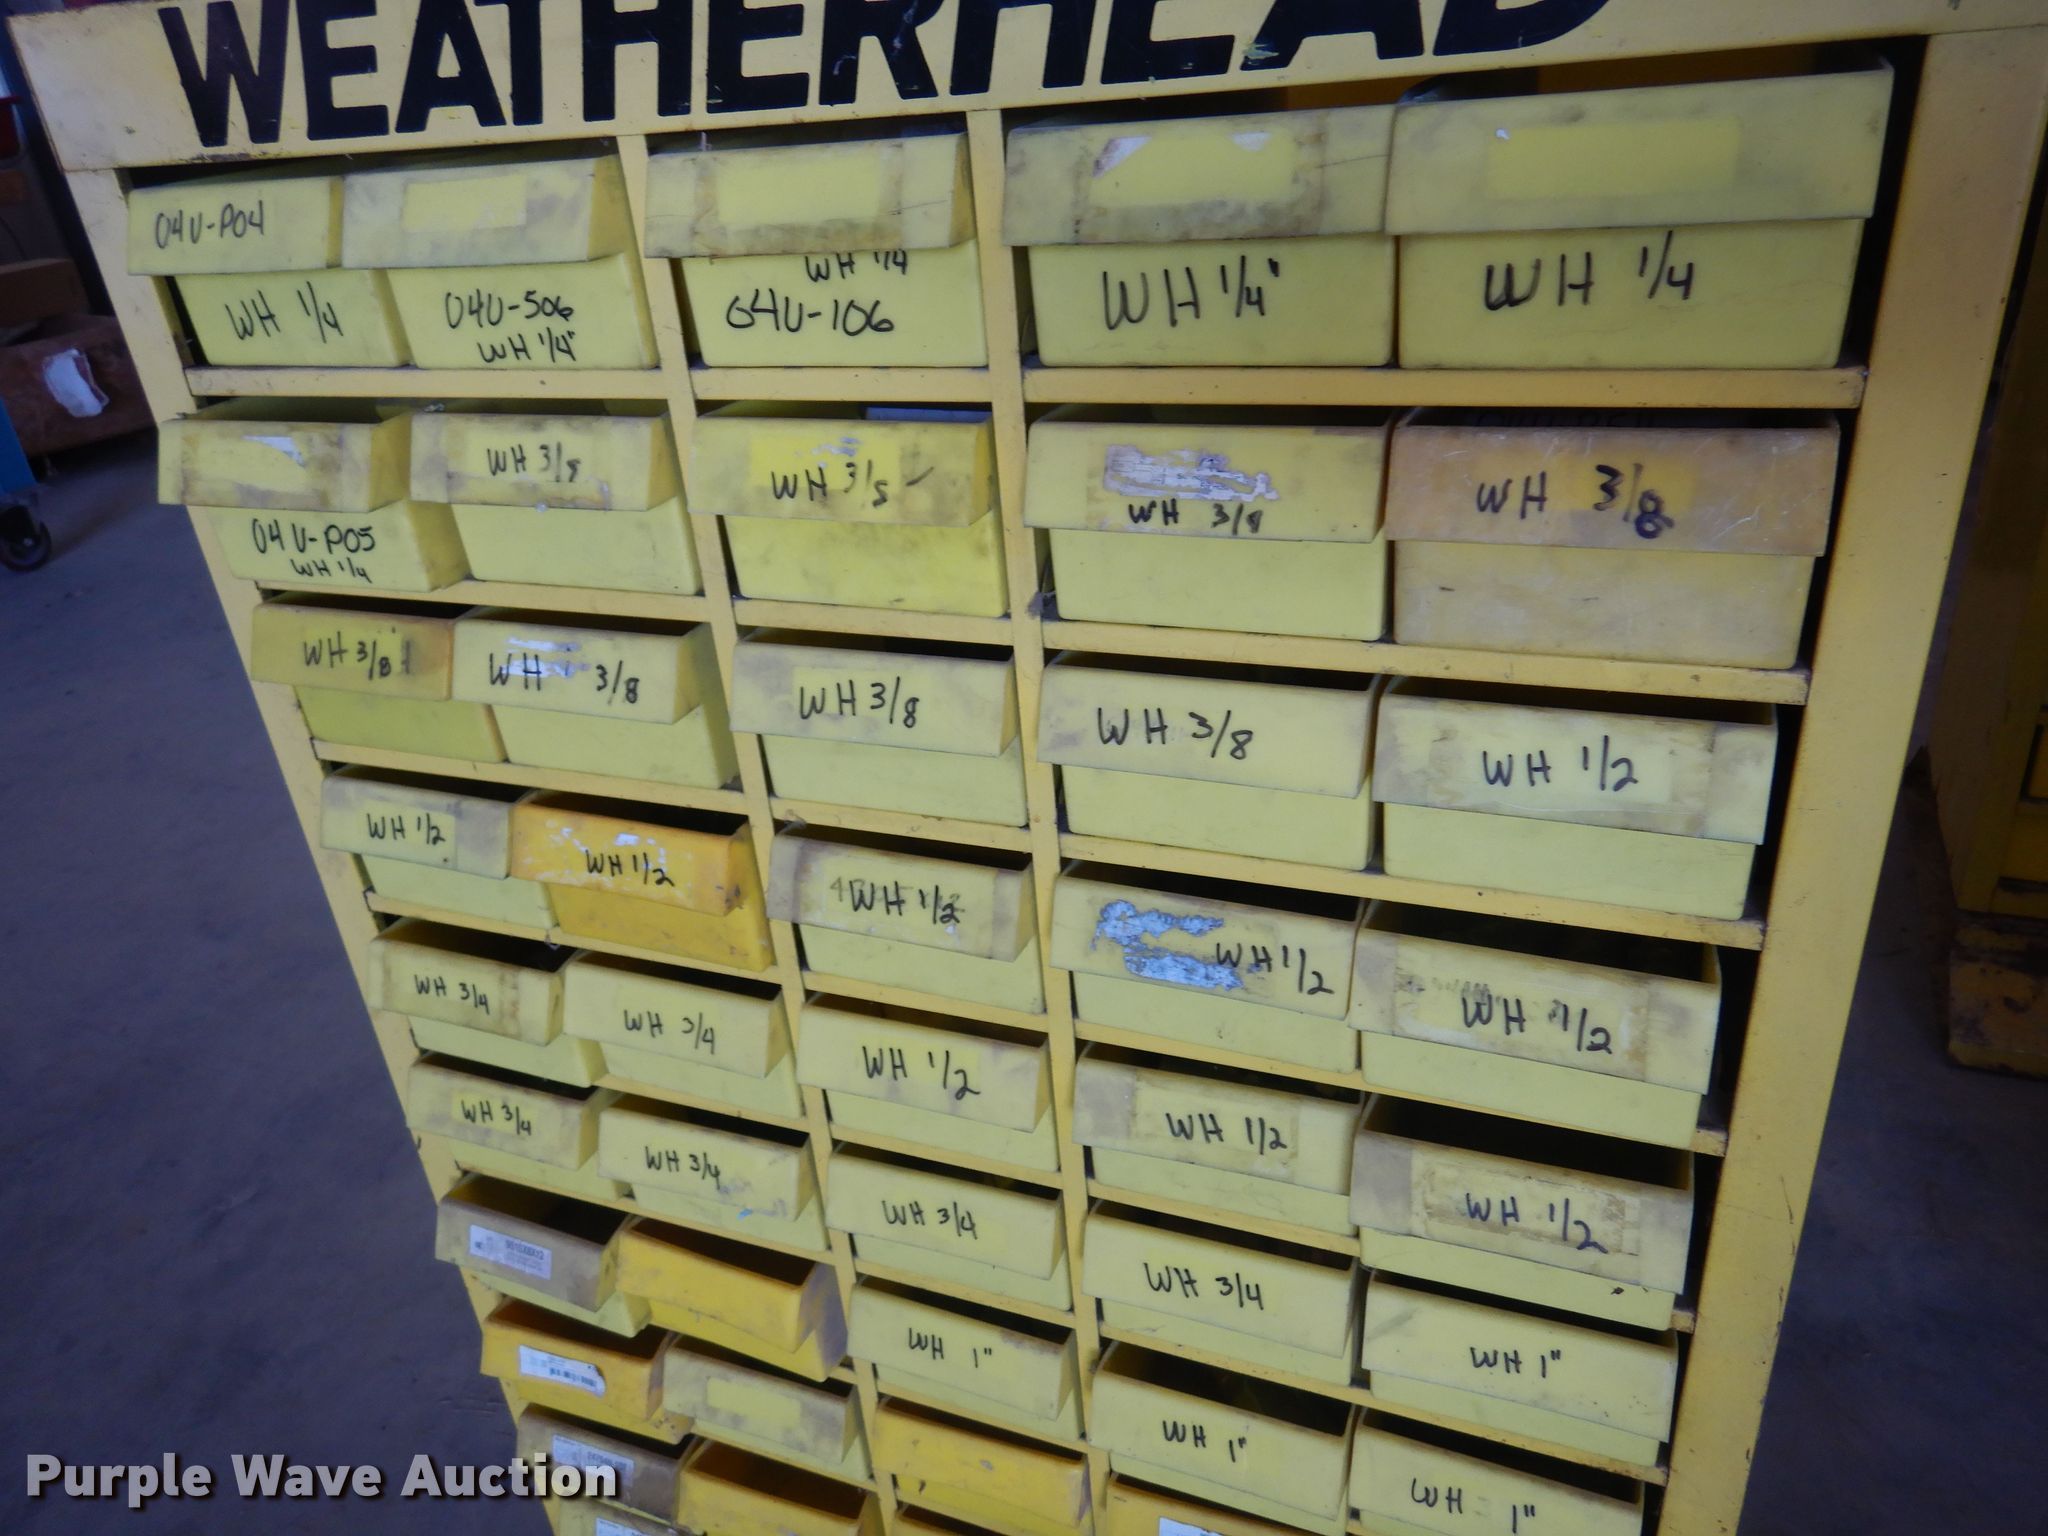 WEATHERHEAD
04U-P04
WH 1/4
04U-506
WH 1/4"
WH 1/4
04U-106
WH 1/4"
WH 1/4
04U-P05
WH 1/4
WH 3/8
WH 3/8
WH 3/8
WH 3/8
WH 3/8
WH 3/8
WH 3/8
WH 3/8
WH 1/2
WH 1/2
WH 1/2
WH 1/2
WH 1/2
WH 1/2
WH 3/4
WH 3/4
WH 1/2
WH 1/2
WH 1/2
WH 3/4
WH 3/4
WH 3/4
WH 3/4
WH 1"
WH 1"
WH 1"
WH 1"
Purple Wave Auction